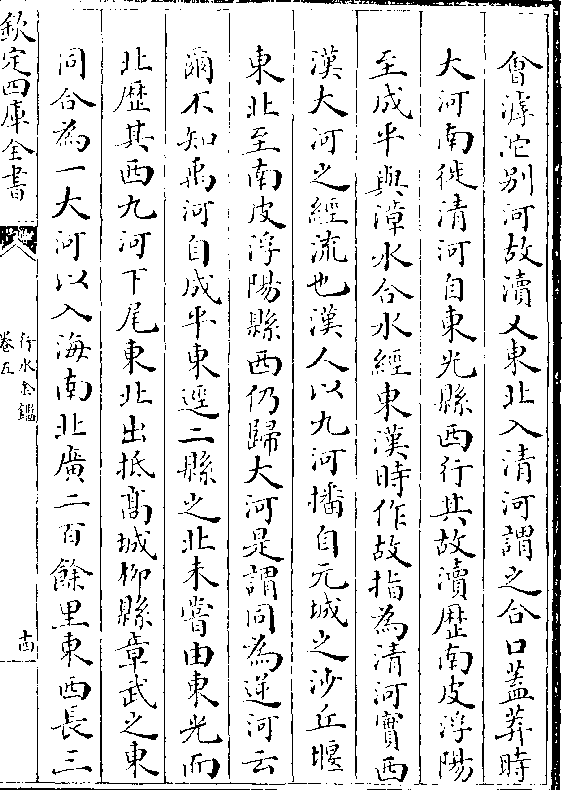 會滹沱別河故瀆又東北入清河謂之合口蓋莽時
大河南徙清河自東光縣西行其故瀆歷南皮浮陽
至成平與漳水合水經東漢時作故指為清河實西
漢大河之經流也漢人以九河播自元城之沙丘堰
東北至南皮浮陽縣西仍歸大河是謂同為逆河云
爾不知禹河自成平東逕二縣之北未嘗由東光而
北歷其西九河下尾東北出抵高城柳縣章武之東
同合為一大河以入海南北廣二百餘里東西長三
欽定四庫全書
行水金鑑
卷五
十四